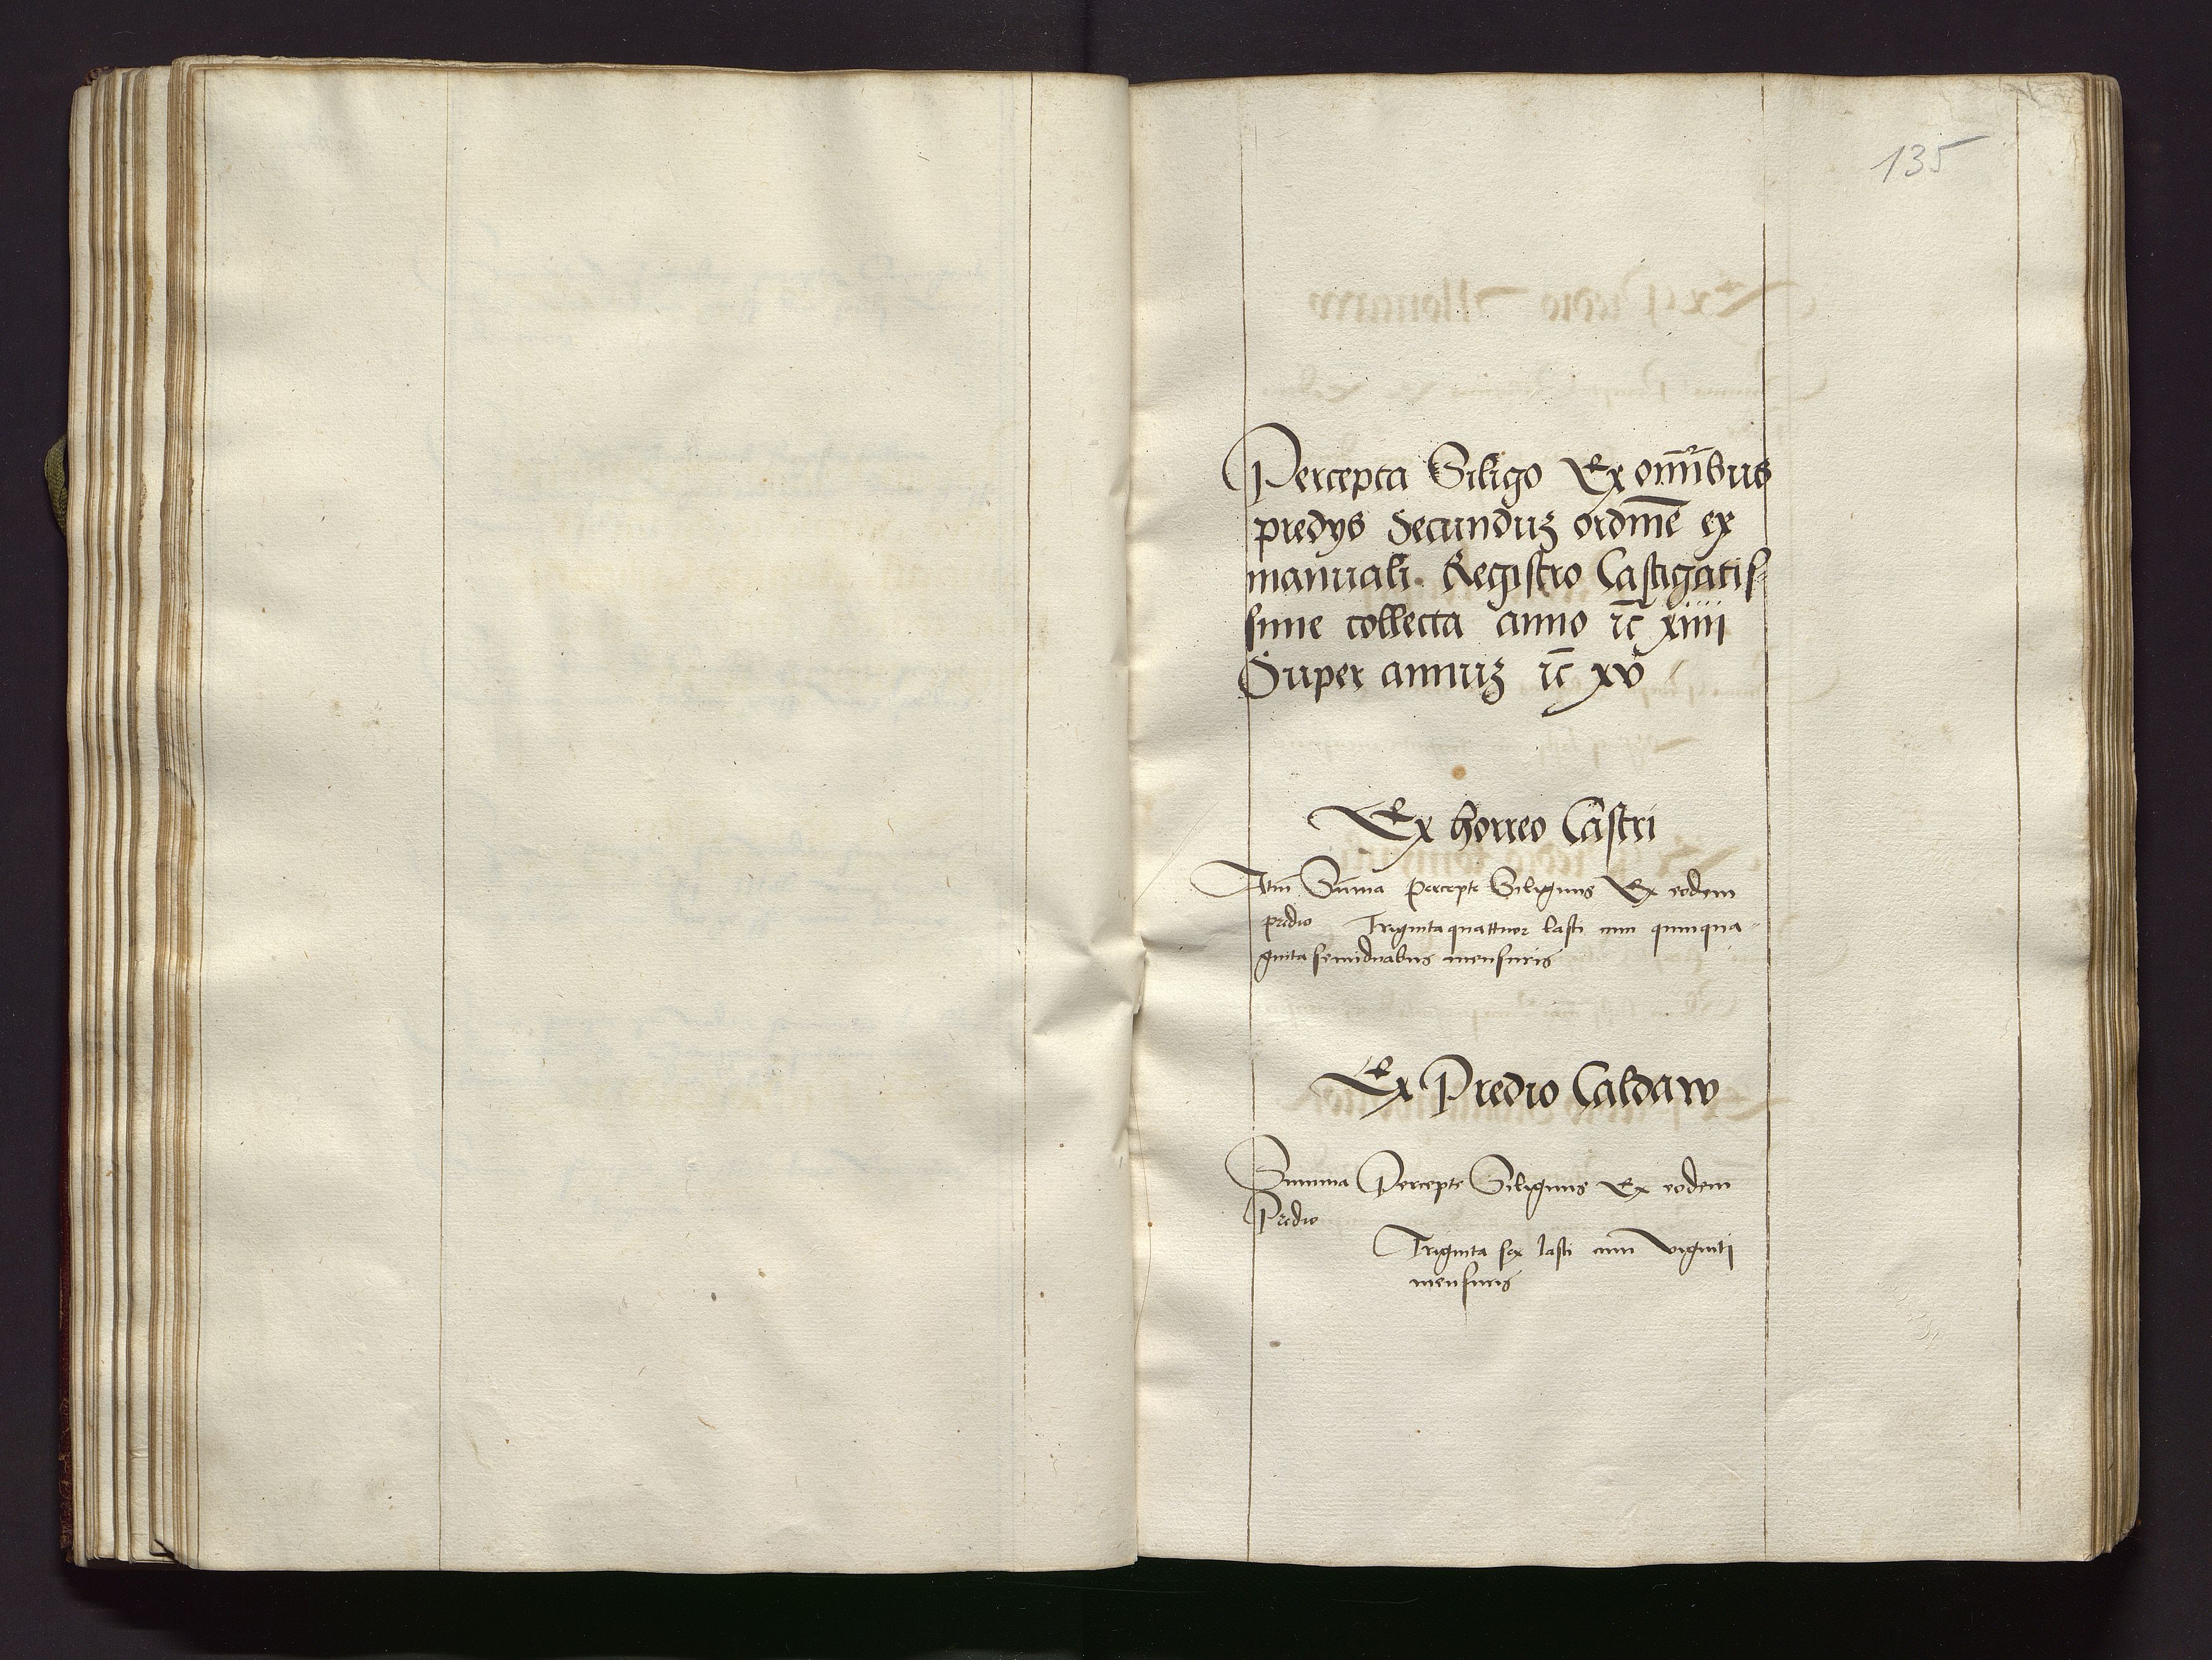 135
Percepta Siligo Ex omnibus
predys Secunduz ordinē ex
manuali Registro Castigatis-
sime collecta anno xiiii
Super annuz xv
Ex horreo Castri
Itm̄ Sūma percepte Siliginis Ex eodem
predio Triginta quattuor lasti cum quinqua-
ginta semiduabus mensuris
Ex Predio Caldaw
Summa Percepte Siliginis Ex eodem
Predio
Triginta sex lasti cum viginti
mensuris